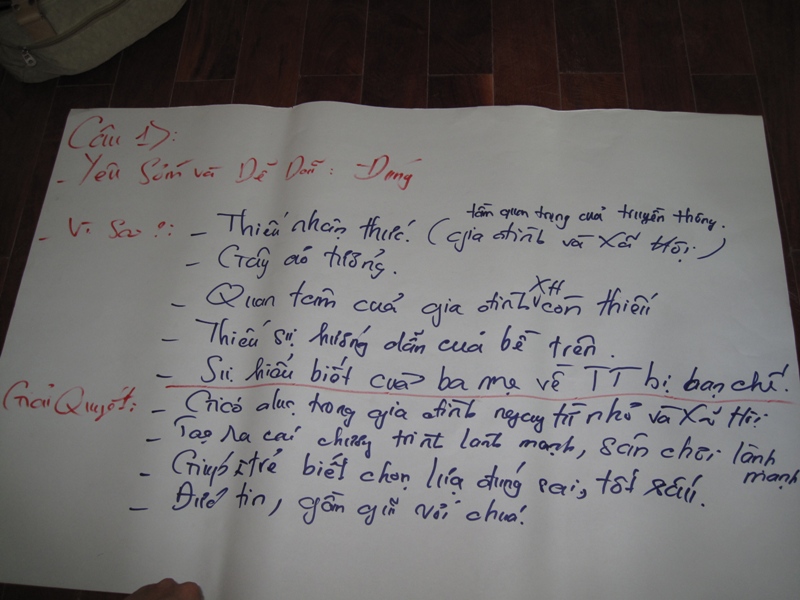 Câu 1):
- Yêu Sớm và Dễ Dãi: - Đúng
- Vì Sao?: - Thiếu nhận thức. (gia đình và Xã Hội) tầm quan trọng của truyền thông.
- Gây ảo tưởng.
- Quan tâm của gia đình XH còn thiếu
- Thiếu sự hướng dẫn của bề trên.
- Sự hiểu biết của ba mẹ về TT bị hạn chế.
Giải Quyết: - Giáo dục trong gia đình ngay từ nhỏ và Xã Hội
- Tạo ra các chương trình lành mạnh, sân chơi lành mạnh
- Giúp trẻ biết chọn lựa đúng sai, tốt xấu.
- Đức tin, gần gũi với chúa.